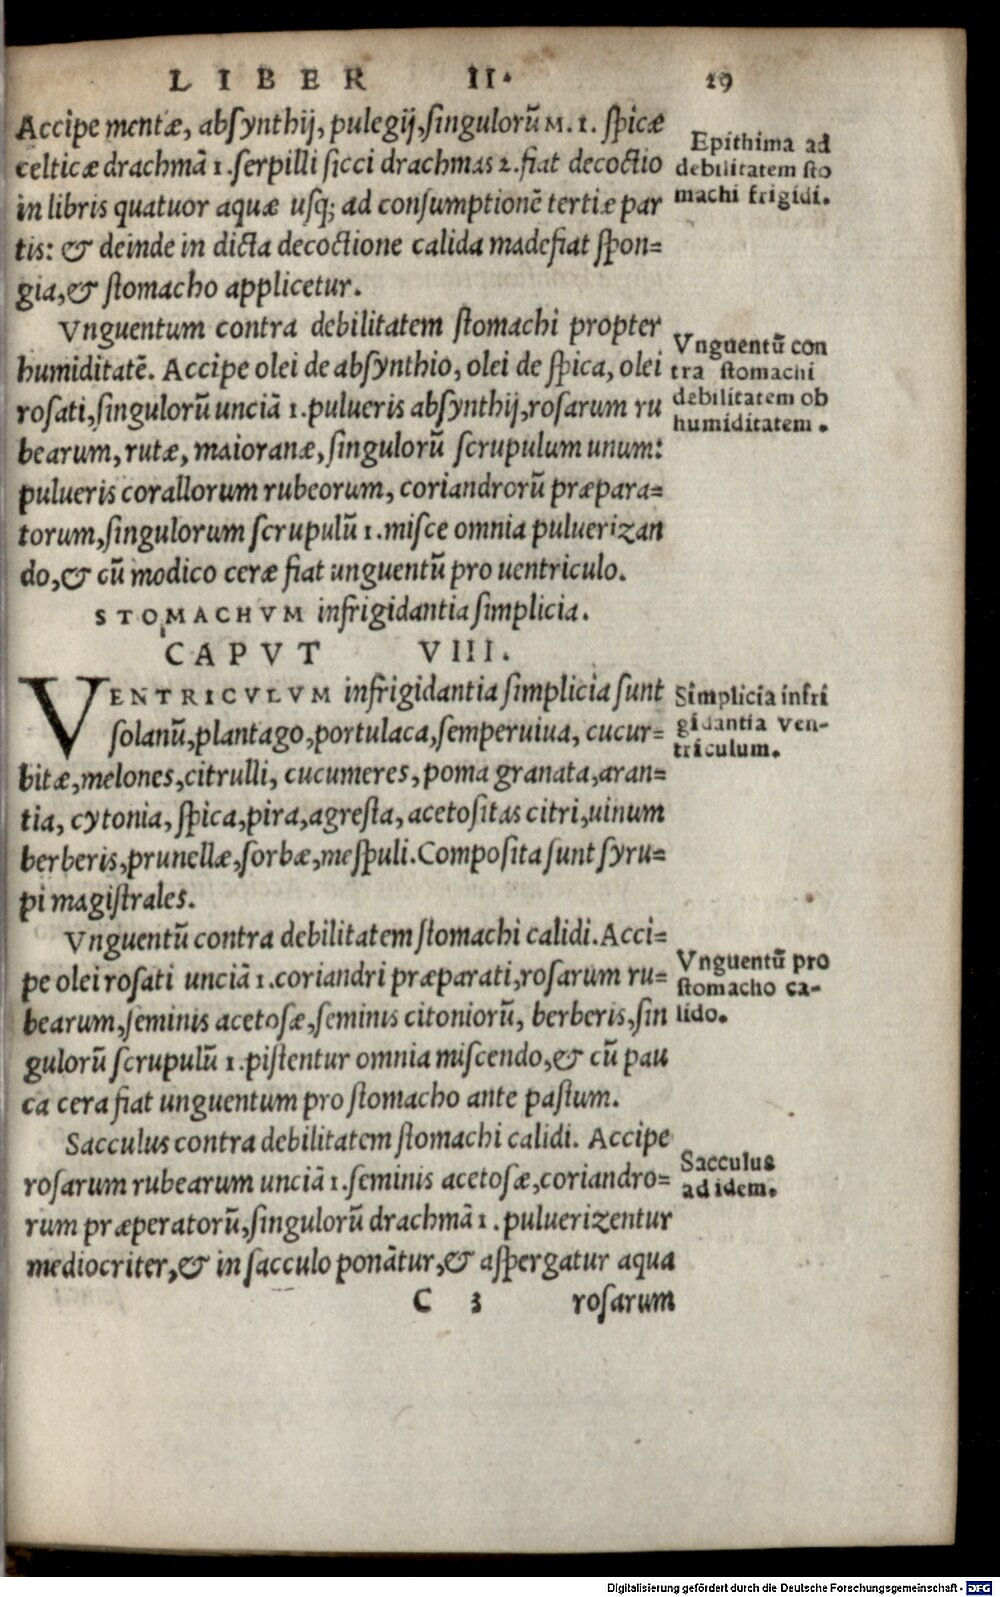 LIBER II. 19
Accipe mentæ, absynthij, pulegij, singulorũ M. 1. spicæ
celticæ drachmã 1. serpilli sicci drachmas 2. fiat decoctio
in libris quatuor aquæ usq; ad consumptionẽ tertiæ par
tis: & deinde in dicta decoctione calida madefiat spon=
gia, & stomacho applicetur.
Epithima ad
debilitatem sto
machi frigidi.
Vnguentum contra debilitatem stomachi propter
humiditatẽ. Accipe olei de absynthio, olei de spica, olei
rosati, singulorũ unciã 1. pulueris absynthij, rosarum ru
bearum, rutæ, maioranæ, singulorũ scrupulum unum:
pulueris corallorum rubeorum, coriandrorũ præpara=
torum, singulorum scrupulũ 1. misce omnia puluerizan
do, & cũ modico ceræ fiat unguentũ pro uentriculo.
Vnguentũ con
tra stomachi
debilitatem ob
humiditatem.
STOMACHVM infrigidantia simplicia.
CAPVT VIII.
VENTRICVLVM infrigidantia simplicia sunt
solanũ, plantago, portulaca, semperuiua, cucur=
bitæ, melones, citrulli, cucumeres, poma granata, aran=
tia, cytonia, spica, pira, agresta, acetositas citri, uinum
berberis, prunellæ, sorbæ, mespuli. Composita sunt syru=
pi magistrales.
Simplicia infri
gidantia ven-
triculum.
Vnguentũ contra debilitatem stomachi calidi. Acci=
pe olei rosati unciã 1. coriandri præparati, rosarum ru=
bearum, seminis acetosæ, seminis citoniorũ, berberis, sin
gulorũ scrupulũ 1. pistentur omnia miscendo, & cũ pau
ca cera fiat unguentum pro stomacho ante pastum.
Vnguentũ pro
stomacho ca-
lido.
Sacculus contra debilitatem stomachi calidi. Accipe
rosarum rubearum unciã 1. seminis acetosæ, coriandro=
rum præperatorũ, singulorũ drachmã 1. puluerizentur
mediocriter, & in sacculo ponãtur, & aspergatur aqua
Sacculus
ad idem.
C 3 rosarum
Digitalisierung gefördert durch die Deutsche Forschungsgemeinschaft - DFG